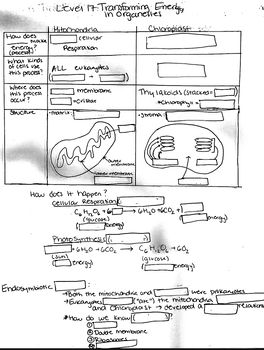 Level 17 Transforming Energy
in Organelles
Mitochondria
Chloroplast
How does
make
energy?
(process)
cellular
Respiration
What kinds
of cells use
this process?
ALL eukaryotes
Where does
this process
occur?
membrane
*Cristae
Thylakoids (stacked=
*Chlorophyll=
Structure
*matrix:
*stroma:
outer membrane
How does it happen?
Cellular Respiration (
C6H12O2 + 6 → 6H2O + 6CO2 +
(glucose)
energy)
energy)
Photosynthesis (
+ 6H2O + 6CO2 → C6H12O2 + 6O2
(sun)
(glucose)
energy)
energy)
Endosymbiotic
→Both the mitochondria and were prokaryotes
→Eukaryotes ("ate") the mitochondria
and Chloroplast → developed a relationship
*How do we know
①
② Double membrane
③ Ribosomes
④